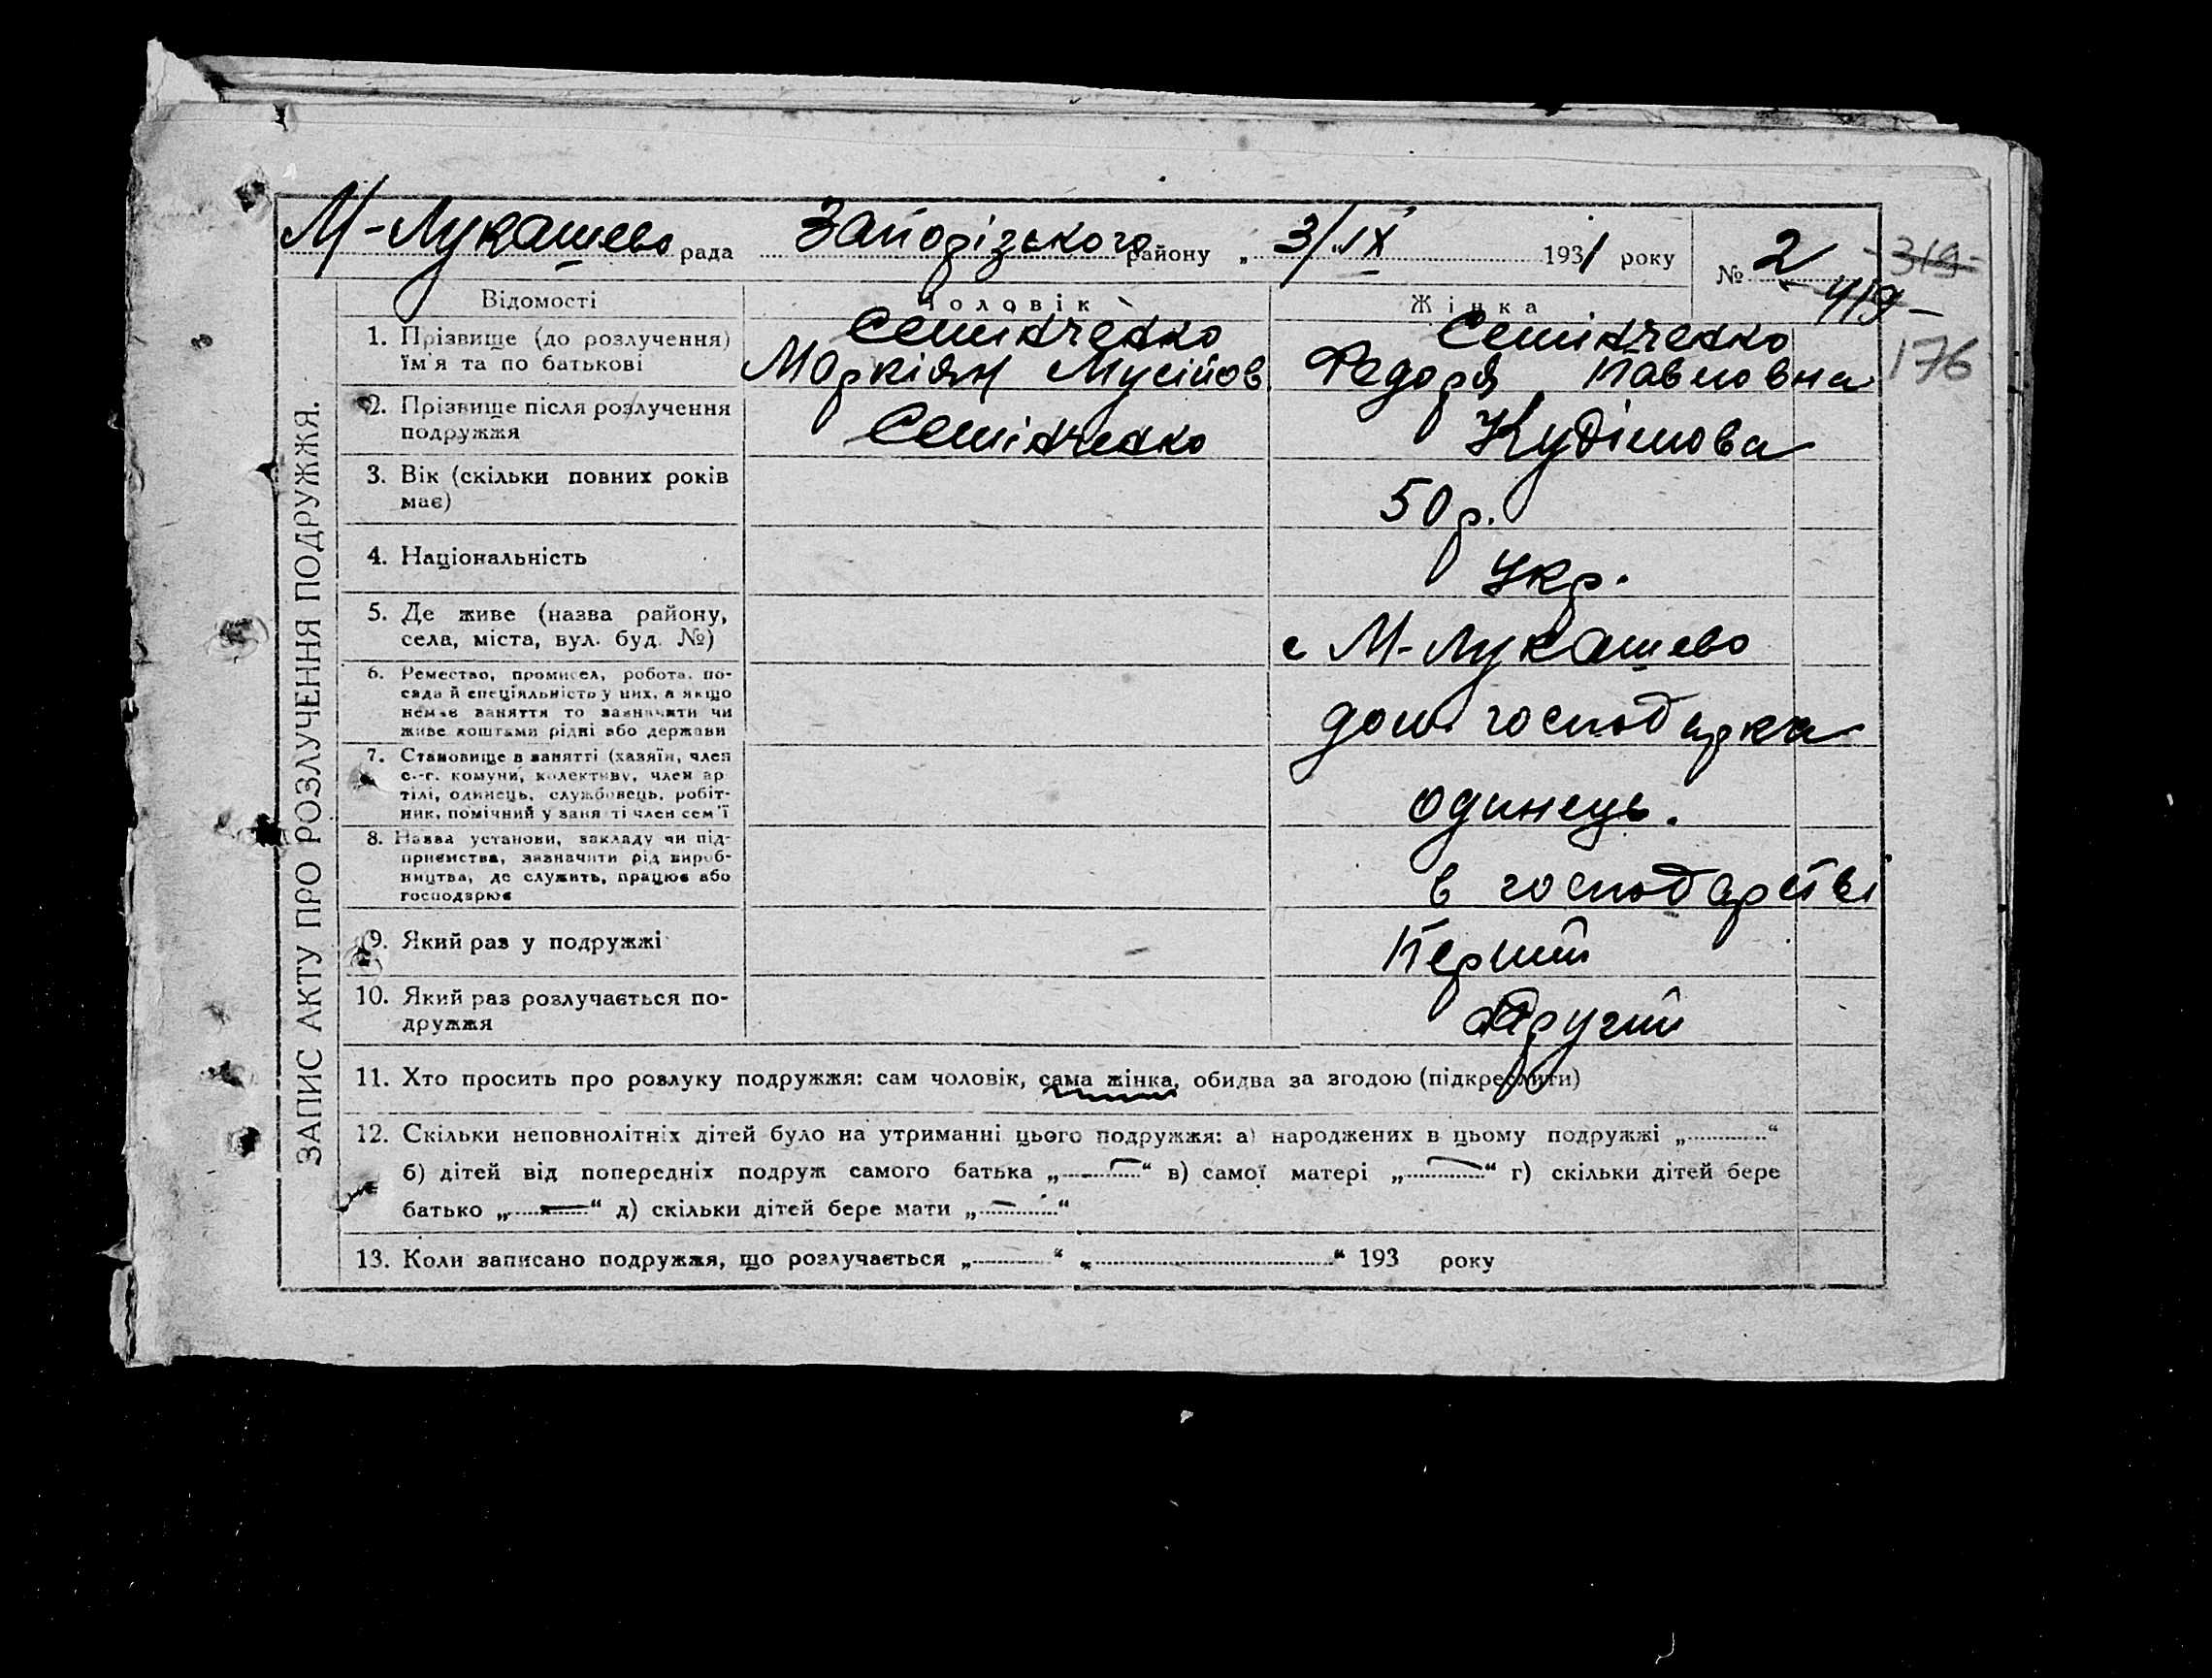 М-Лукашево рада Запорізького району „ 3/ІХ 1931 року № 2
319
419
176
ЗАПИС АКТУ ПРО РОЗЛУЧЕННЯ ПОДРУЖЖЯ.
Відомості Чоловік Жінка
1. Прізвище (до розлучення) ім'я та по батькові
Семінченко
Маркіян Мусійов.
Семінченко
Федоря Павловна
2. Прізвище після розлучення подружжя
Семінченко
Кудімова
3. Вік (скільки повних років має)
50 р.
4. Національність
Укр.
5. Де живе (назва району, села, міста, вул. буд. №)
с М-Лукашево
6. Ремество, промисел, робота, посада й спеціяльність у них, а якщо немає заняття то зазначити чи живе коштами рідні або держави
дом господарка
7. Становище в занятті (хазяїн, член с.-г. комуни, колективу, член артілі, одинець, службовець, робітник, помічний у занятті член сем'ї
одинець.
8. Назва установи, закладу чи підприємства, зазначити рід виробництва, де служить, працює або господарює
в господарстві
9. Який раз у подружжі
Перший
10. Який раз розлучається подружжя
другий
11. Хто просить про розлуку подружжя: сам чоловік, сама жінка, обидва за згодою (підкреслити)
12. Скільки неповнолітніх дітей було на утриманні цього подружжя: а) народжених в цьому подружжі „............“
б) дітей від попередніх подруж самого батька „—“ в) самої матері „—“ г) скільки дітей бере
батько „—“ д) скільки дітей бере мати „—“
13. Коли записано подружжя, що розлучається „............“ „............“ 193 року